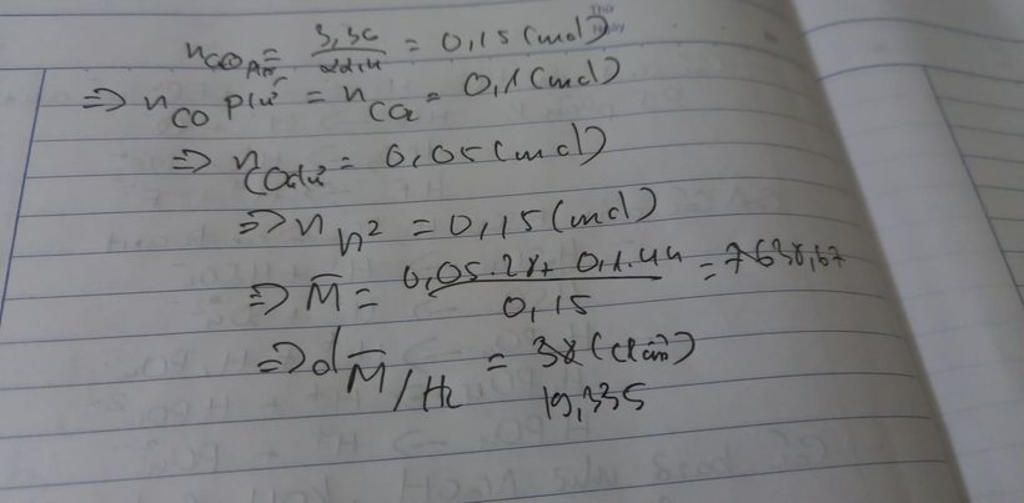 nCO = 3,36 / 22,4 = 0,15 (mol)
=> nCO pư = nCO2 = 0,1 (mol)
=> nCO dư = 0,05 (mol)
=> n h2 = 0,15 (mol)
=> M̅ = 0,05.28+ 0,1.44 / 0,15 = 38,67
=> d M̅/H2 = (lần)
19,335